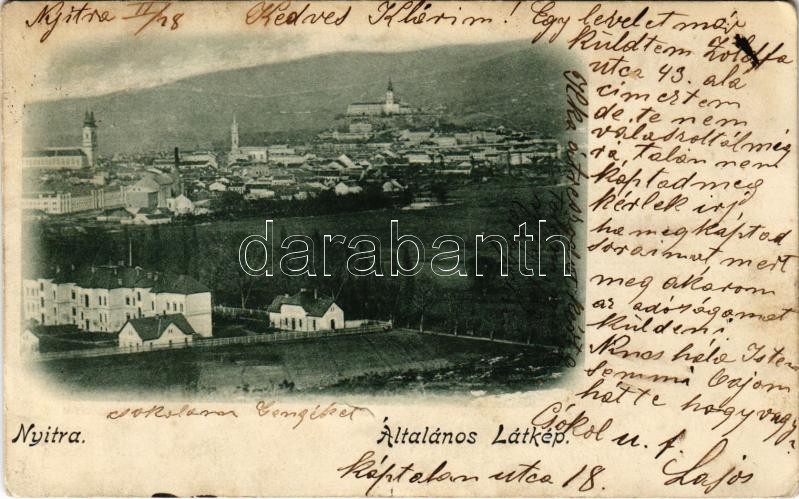 Nyitra II/28 Kedves Klárim! Egy levelet már
küldtem Zolda
utca 43. ala
cimeztem
de te nem
válaszoltál még
rá, talán nem
kaptad meg
kérlek irj
ha megkaptad
soraimat mert
meg akarom
az adóságomat
küldeni
Nincs hála Isten
semmi bajom
hát te hogy vagy?
Csókol u. f.
Lajos
káptalan utca 18.
darabanth.com
Nyitra.
Általános Látkép.